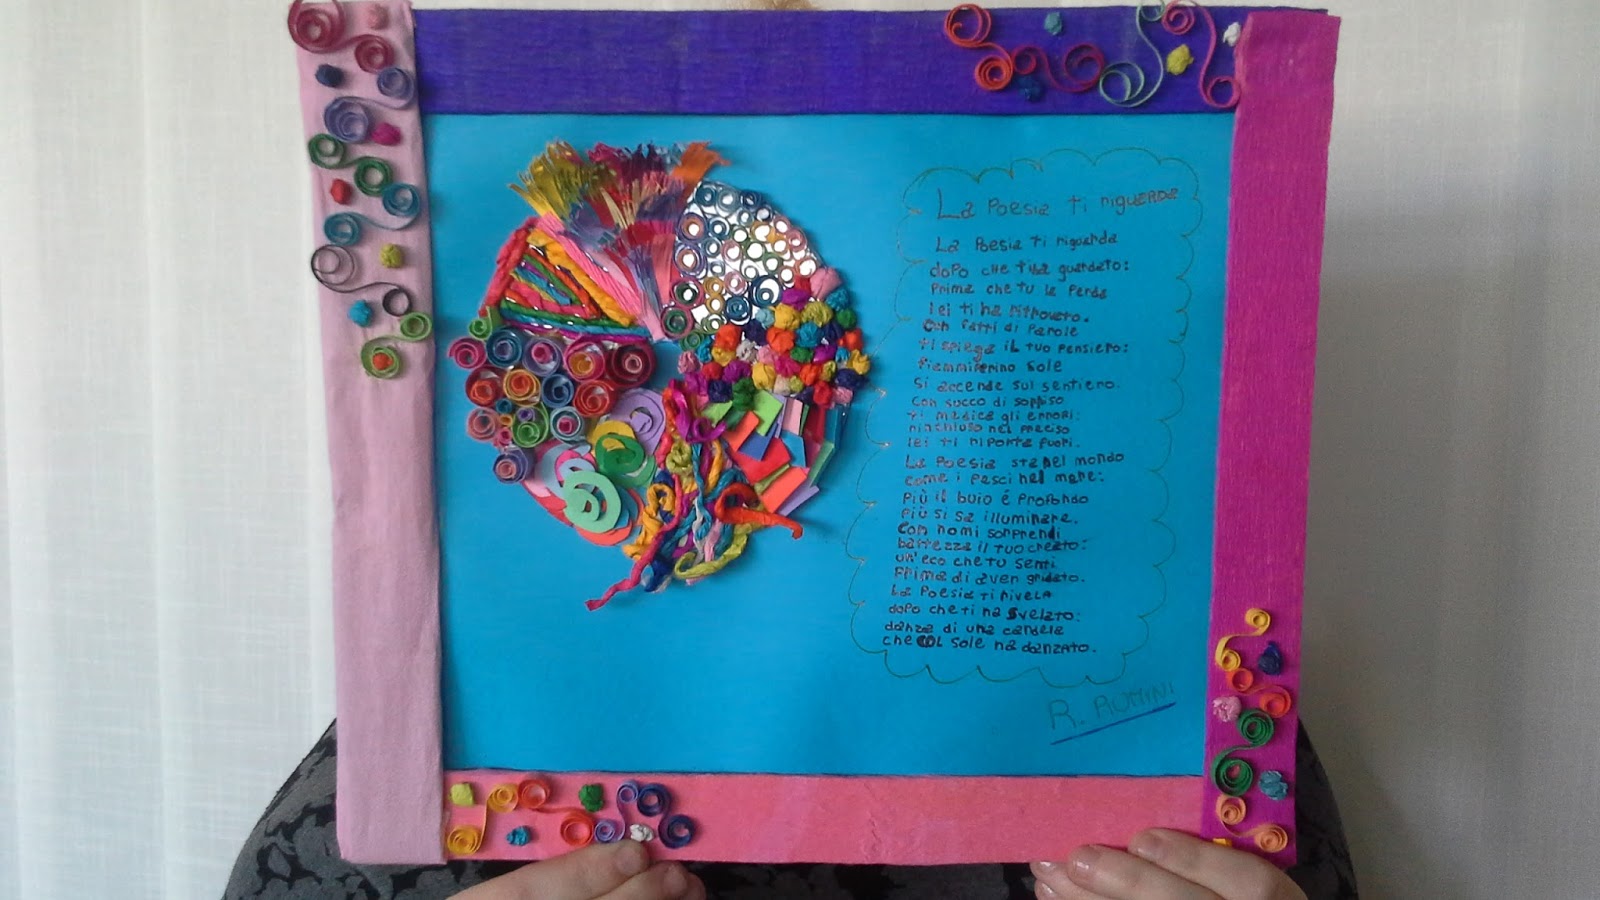 La Poesia ti riguarda
La Poesia ti riguarda
dopo che ti ha guardato:
Prima che tu la Perda
lei ti ha ritrovato.
Con fatti di Parole
ti spiega il tuo pensiero:
fiammiferino sole
Si accende sul sentiero.
Con succo di sorriso
ti medica gli errori:
rinchiuso nel preciso
lei ti riporta fuori.
La Poesia sta nel mondo
come i pesci nel mare:
Più il buio é profondo
più si sa illuminare.
Con nomi sorprendi
battezza il tuo creato:
un'eco che tu senti
Prima di aver gridato.
La Poesia ti rivela
dopo che ti ha svelato:
danza di una candela
che col sole ha danzato.
R. RUMINI